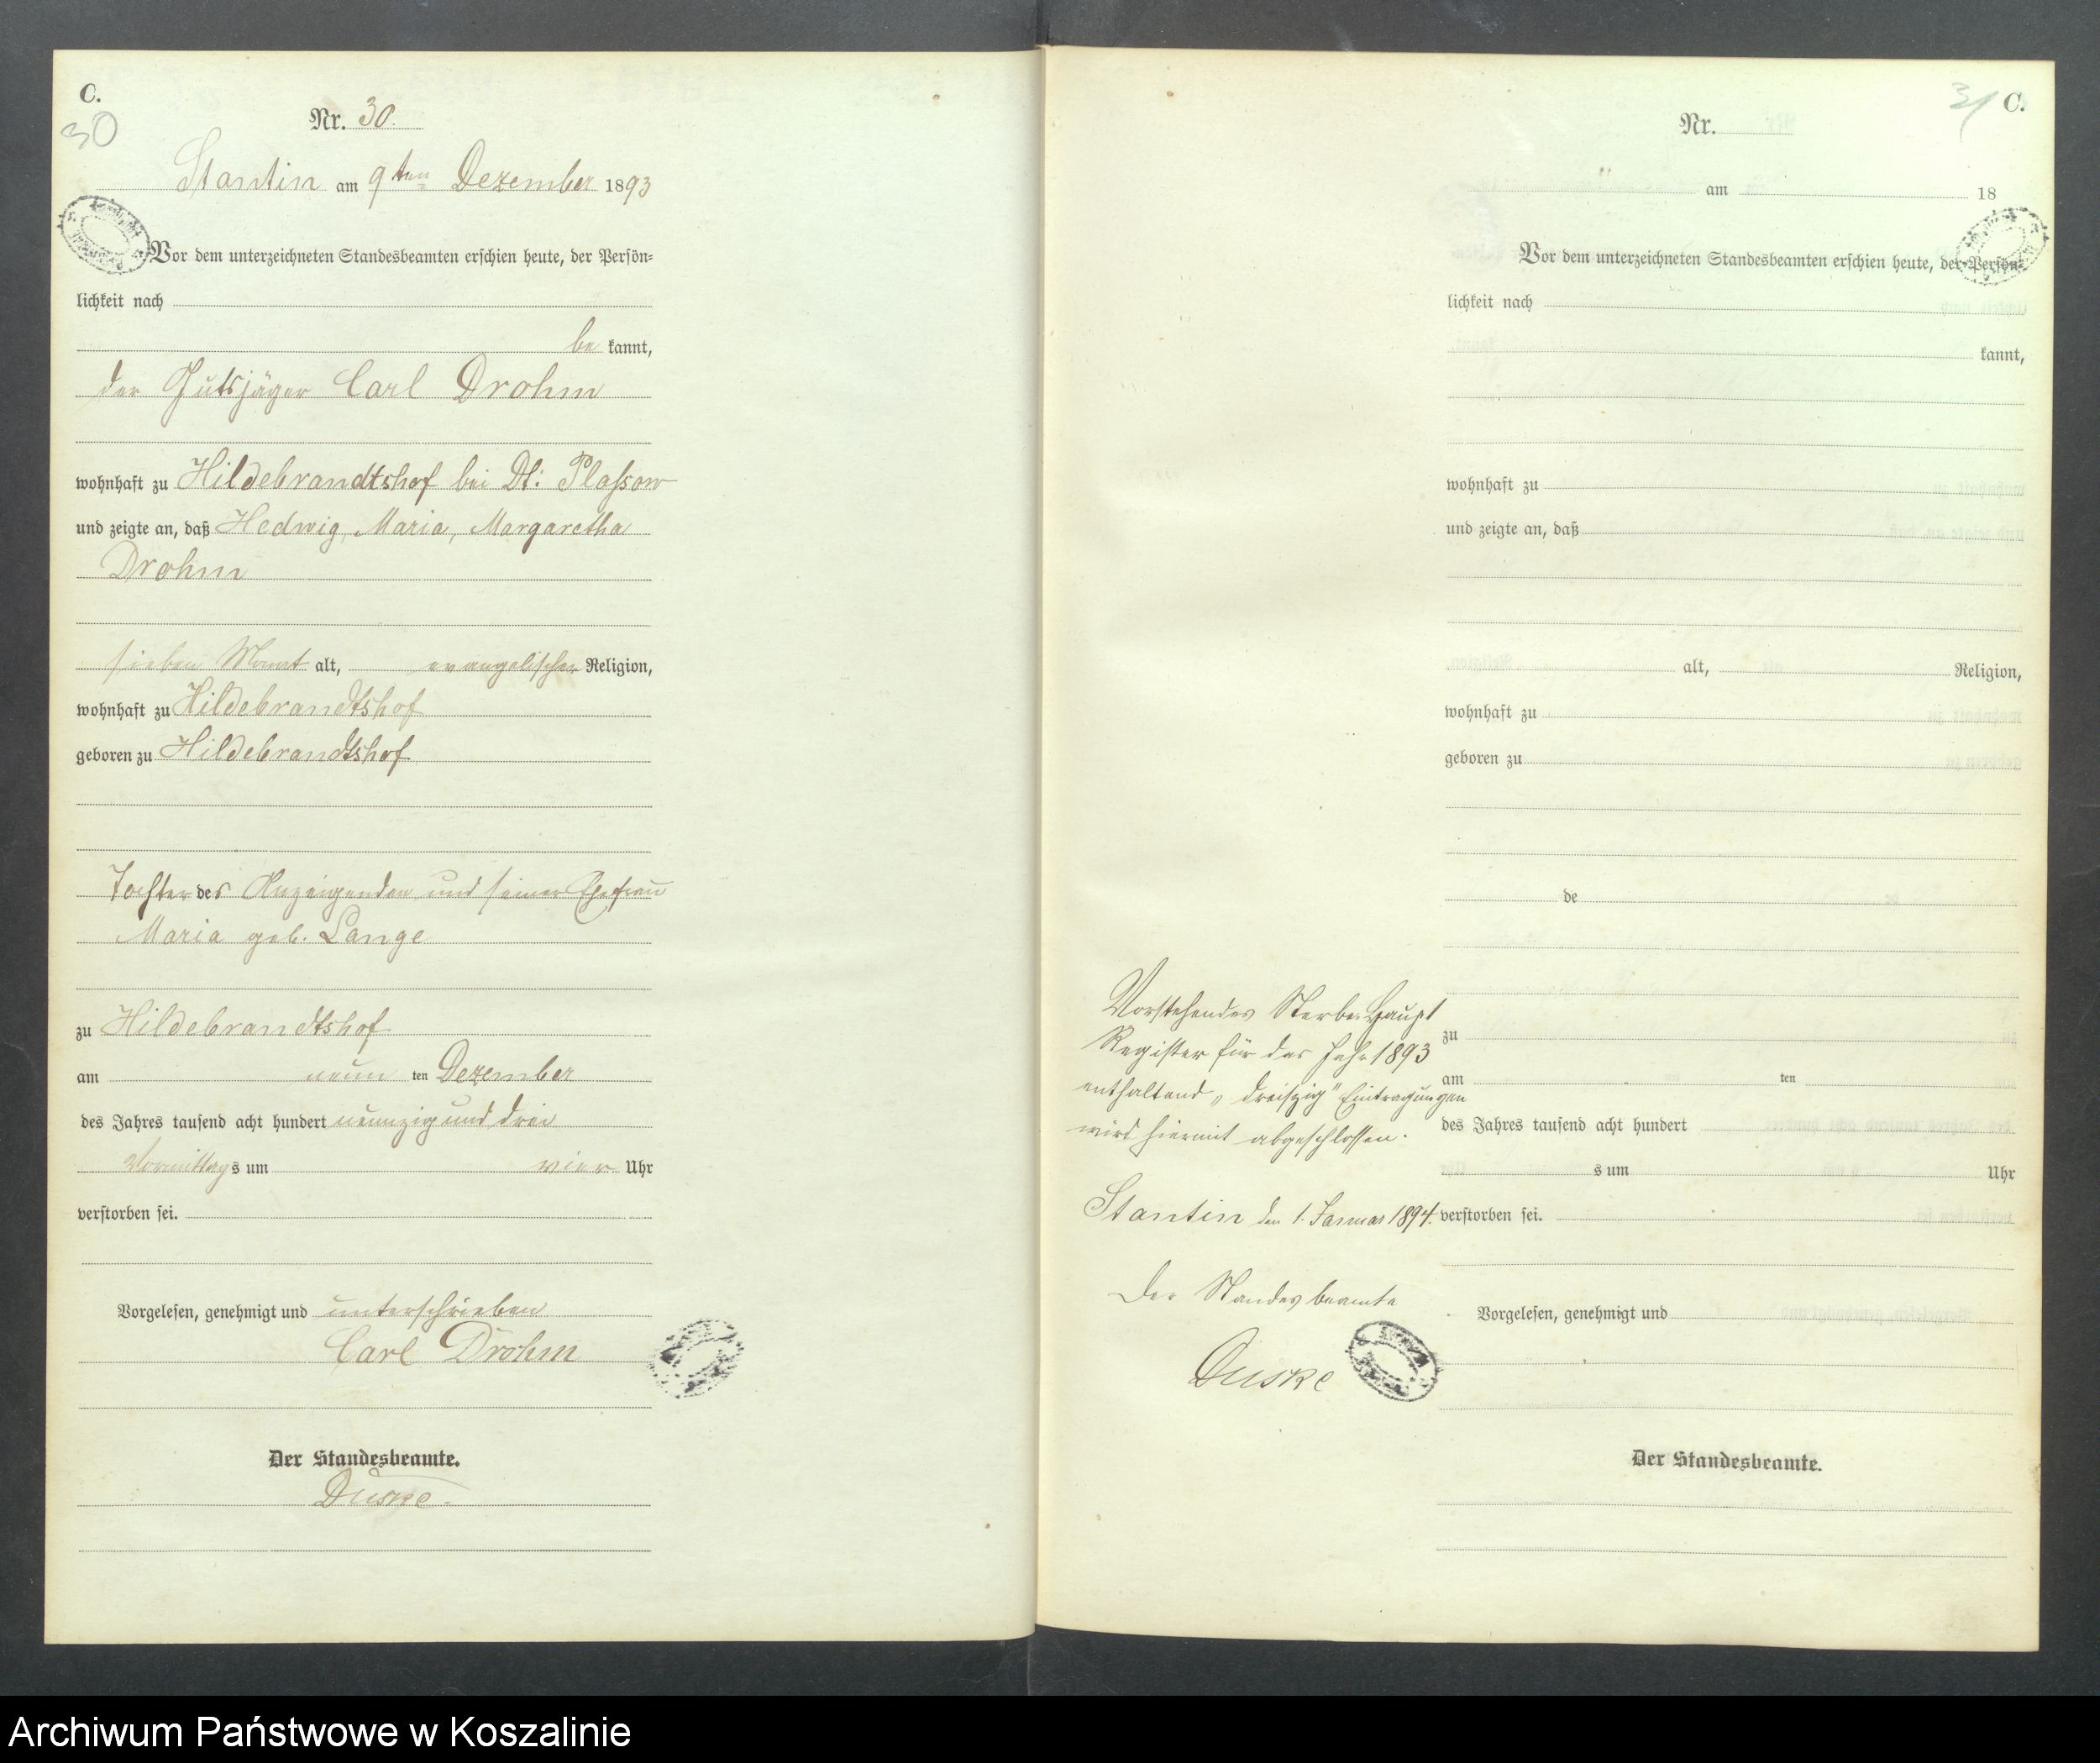 C.
30
Nr. 30.
Stantin am 9ten Dezember 1893
Vor dem unterzeichneten Standesbeamten erschien heute, der Persön-
lichkeit nach
be kannt,
der Gutsjäger Carl Drohm
wohnhaft zu Hildebrandtshof bei Dt: Plassow
und zeigte an, daß Hedwig, Maria, Margaretha
Drohm
sieben Monat alt, evangelischer Religion,
wohnhaft zu Hildebrandtshof
geboren zu Hildebrandtshof
Tochter des Anzeigenden und seiner Ehefrau
Maria geb. Lange
zu Hildebrandtshof
am neun ten Dezember
des Jahres tausend acht hundert neunzig und drei
Vormittags um vier Uhr
verstorben sei.
Vorgelesen, genehmigt und unterschrieben
Carl Drohm
Der Standesbeamte.
Duske.
31
C.
Nr.
am 18
Vor dem unterzeichneten Standesbeamten erschien heute, der Persön-
lichkeit nach
kannt,
wohnhaft zu
und zeigte an, daß
alt, Religion,
wohnhaft zu
geboren zu
de
zu
am ten
des Jahres tausend acht hundert
s um Uhr
verstorben sei.
Vorgelesen, genehmigt und
Der Standesbeamte.
Vorstehendes Sterbe-Haupt
Register für das Jahr 1893
enthaltend „dreiszig" Eintragungen
wird hiermit abgeschlossen.
Stantin den 1. Januar 1894.
Der Standesbeamte
Duske
Archiwum Państwowe w Koszalinie